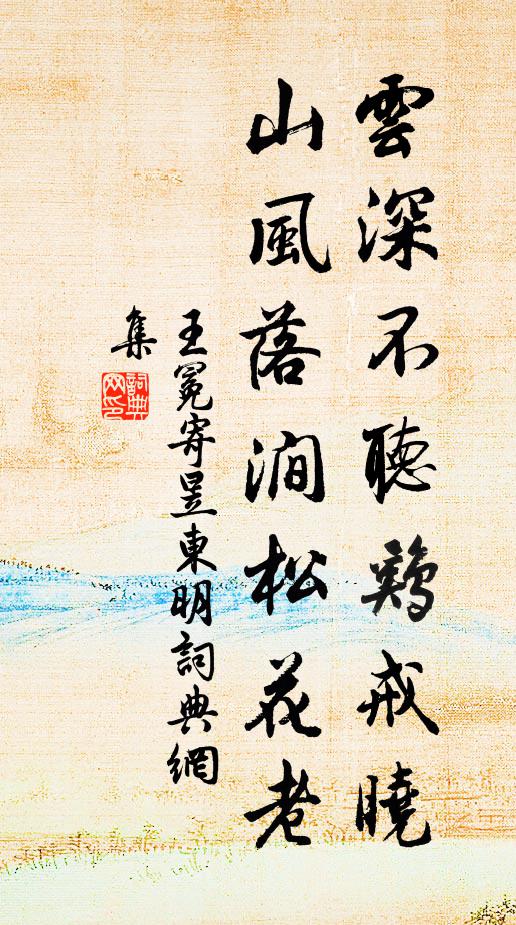 雲深不聽鷄戒曉
山風落澗松花老
王冕寄昱東明詞典網
集
詞典
网印